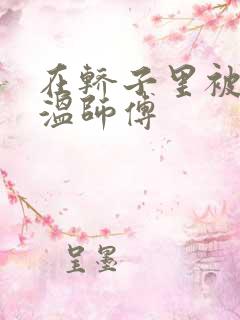 在轿子里被
温师傅
呈墨